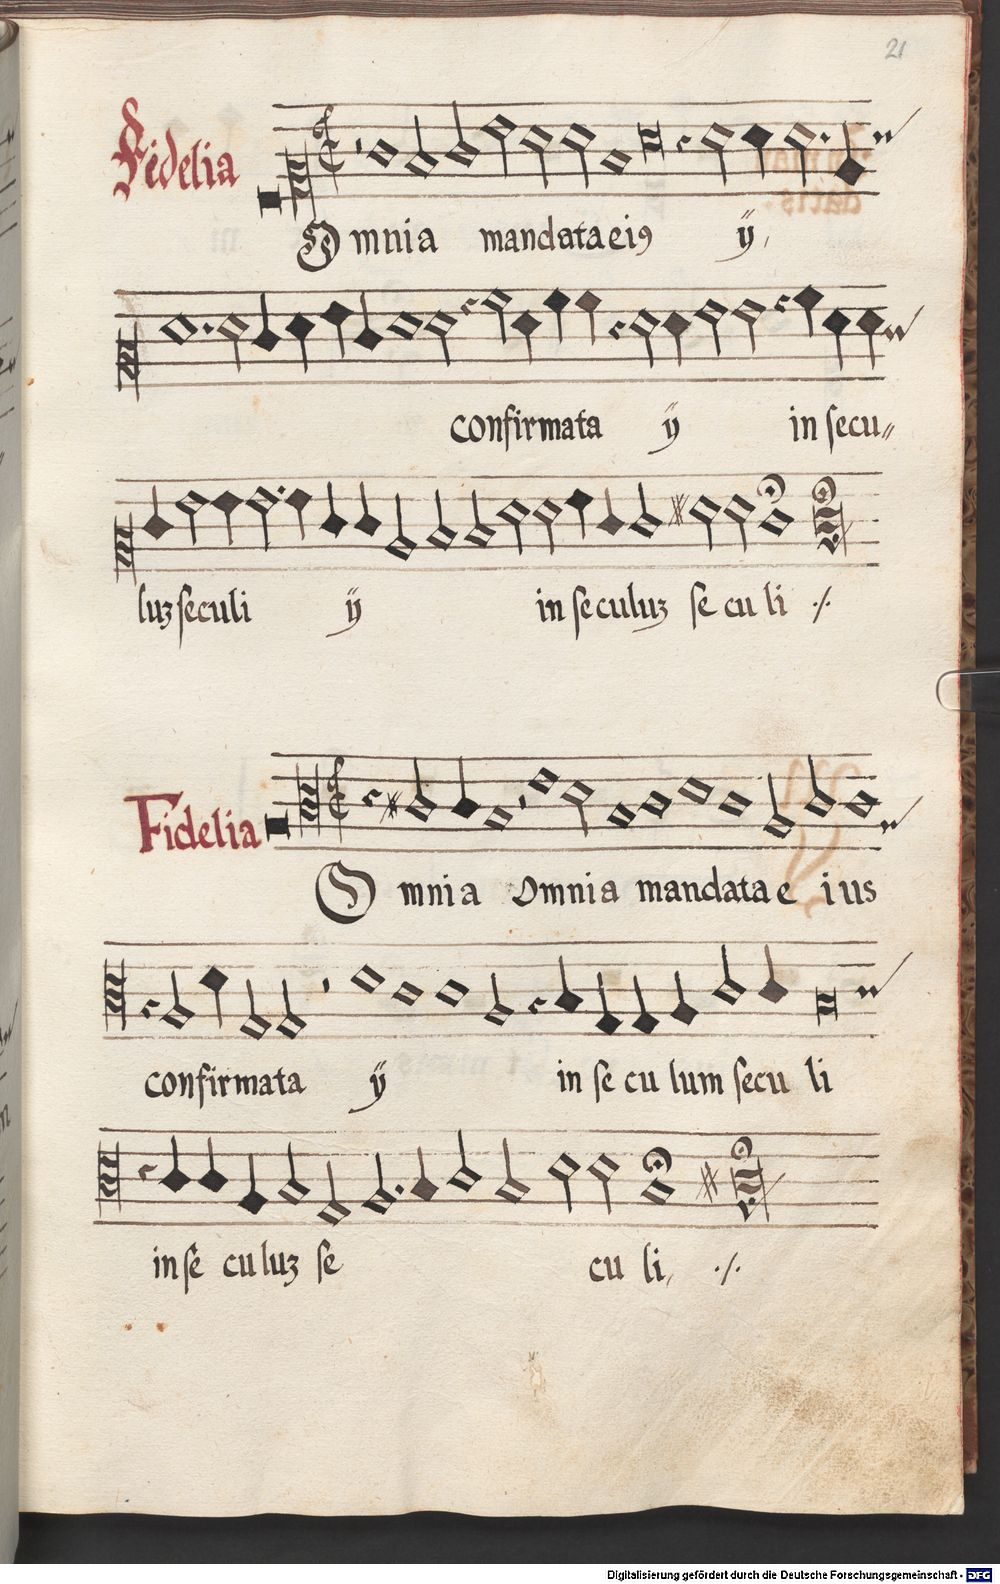 21
Fidelia
Omnia mandata ei9 ÿ
confirmata ÿ in secu〃
luʒ seculi ÿ in seculuʒ seculi ·/·
Fidelia
Omnia Omnia mandata eius
confirmata ÿ in seculum seculi
in seculuʒ seculi, ·/·
Digitalisierung gefördert durch die Deutsche Forschungsgemeinschaft - DFG